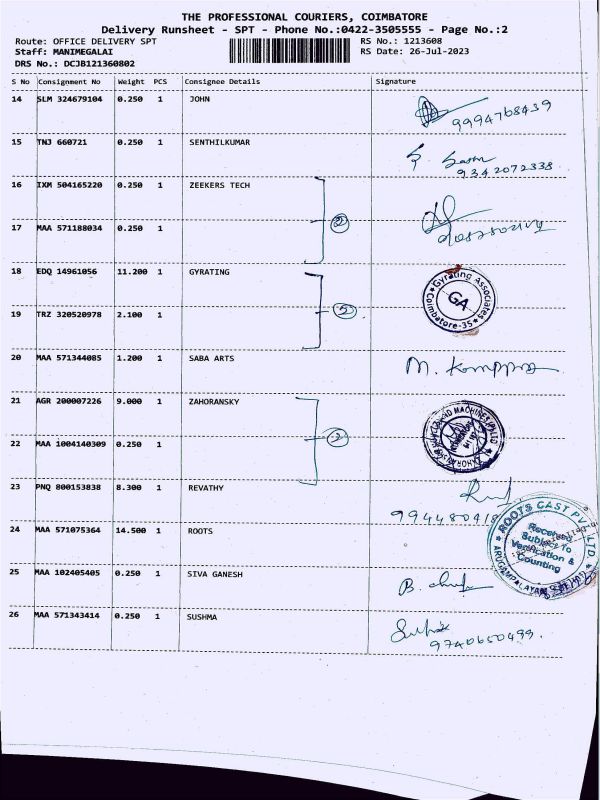 THE PROFESSIONAL COURIERS, COIMBATORE
Delivery Runsheet - SPT - Phone No.:0422-3505555 - Page No.:2
Route: OFFICE DELIVERY SPT
RS No.: 1213608
Staff: MANIMEGALAI
RS Date: 26-Jul-2023
DRS No.: DCJB121360802
S No Consignment No Weight PCS Consignee Details Signature
14 SLM 324679104 0.250 1 JOHN
9994768439
15 TNJ 660721 0.250 1 SENTHILKUMAR
9342072338
16 IXM 504165220 0.250 1 ZEEKERS TECH
17 MAA 571188034 0.250 1
18 EDQ 14961056 11.200 1 GYRATING
Gyrating Associates
GA
Coimbatore-35
19 TRZ 320520978 2.100 1
20 MAA 571344085 1.200 1 SABA ARTS
21 AGR 200007226 9.000 1 ZAHORANSKY
22 MAA 1004140309 0.250 1
23 PNQ 800153838 8.300 1 REVATHY
24 MAA 571075364 14.500 1 ROOTS
ROOTS CAST PVT. LTD.
Received
Subject To
Verification &
Counting
25 MAA 102405405 0.250 1 SIVA GANESH
26 MAA 571343414 0.250 1 SUSHMA
9740650499.